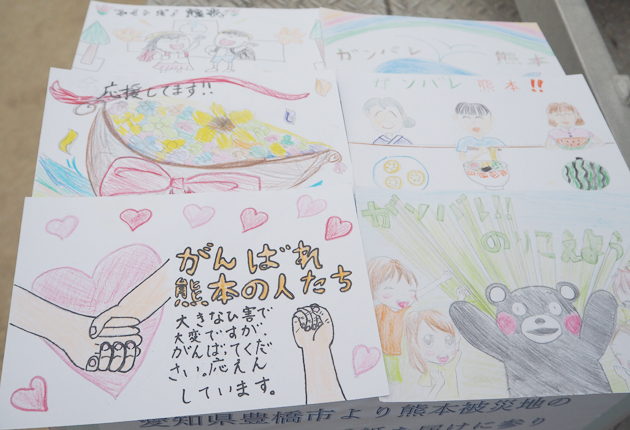 がんばれ 熊本
ガンバレ 熊本
応援してます!!
ガンバレ 熊本!!
がんばれ
熊本の人たち
大きなひ害で
大変ですが、
がんばってくだ
さい。応えん
しています。
ガンバレ!!
のりこえよう
愛知県豊橋市より熊本被災地の